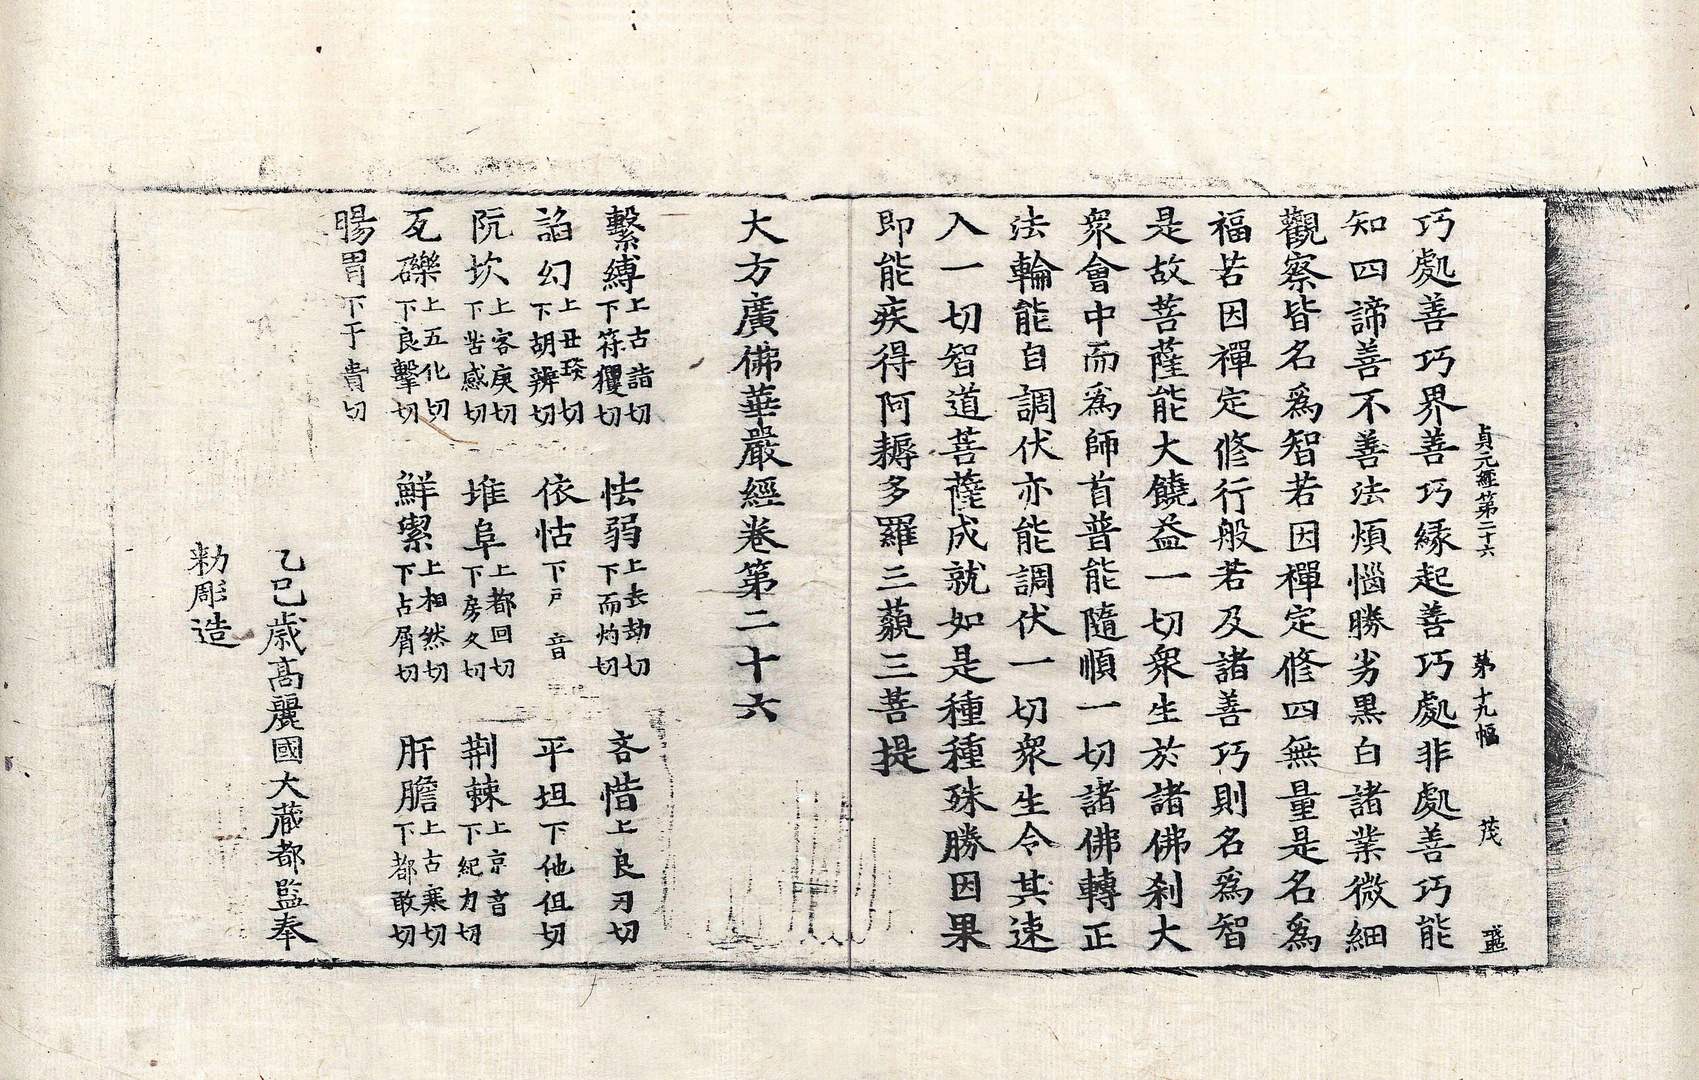 貞元經第二十六 第十九幅 茂
巧處善巧界善巧緣起善巧處非處善巧能
知四諦善不善法煩惱勝劣黑白諸業微細
觀察皆名爲智若因禪定修四無量是名爲
福若因禪定修行般若及諸善巧則名爲智
是故菩薩能大饒益一切衆生於諸佛刹大
衆會中而爲師首普能隨順一切諸佛轉正
法輪能自調伏亦能調伏一切衆生令其速
入一切智道菩薩成就如是種種殊勝因果
即能疾得阿耨多羅三藐三菩提
大方廣佛華嚴經卷第二十六
繫縛上古詣切下符钁切 怯弱上去劫切下而灼切 吝惜上良刃切
諂幻上丑琰切下胡辨切 依怙下戶音 平坦下他但切
阬坎上客庚切下苦感切 堆阜上都回切下房久切 荆棘上京音下紀力切
瓦礫上五化切下良擊切 鮮絜上相然切下占屑切 肝膽上古寒切下都敢切
腸胃下于貴切
乙巳歲高麗國大藏都監奉
勑彫造